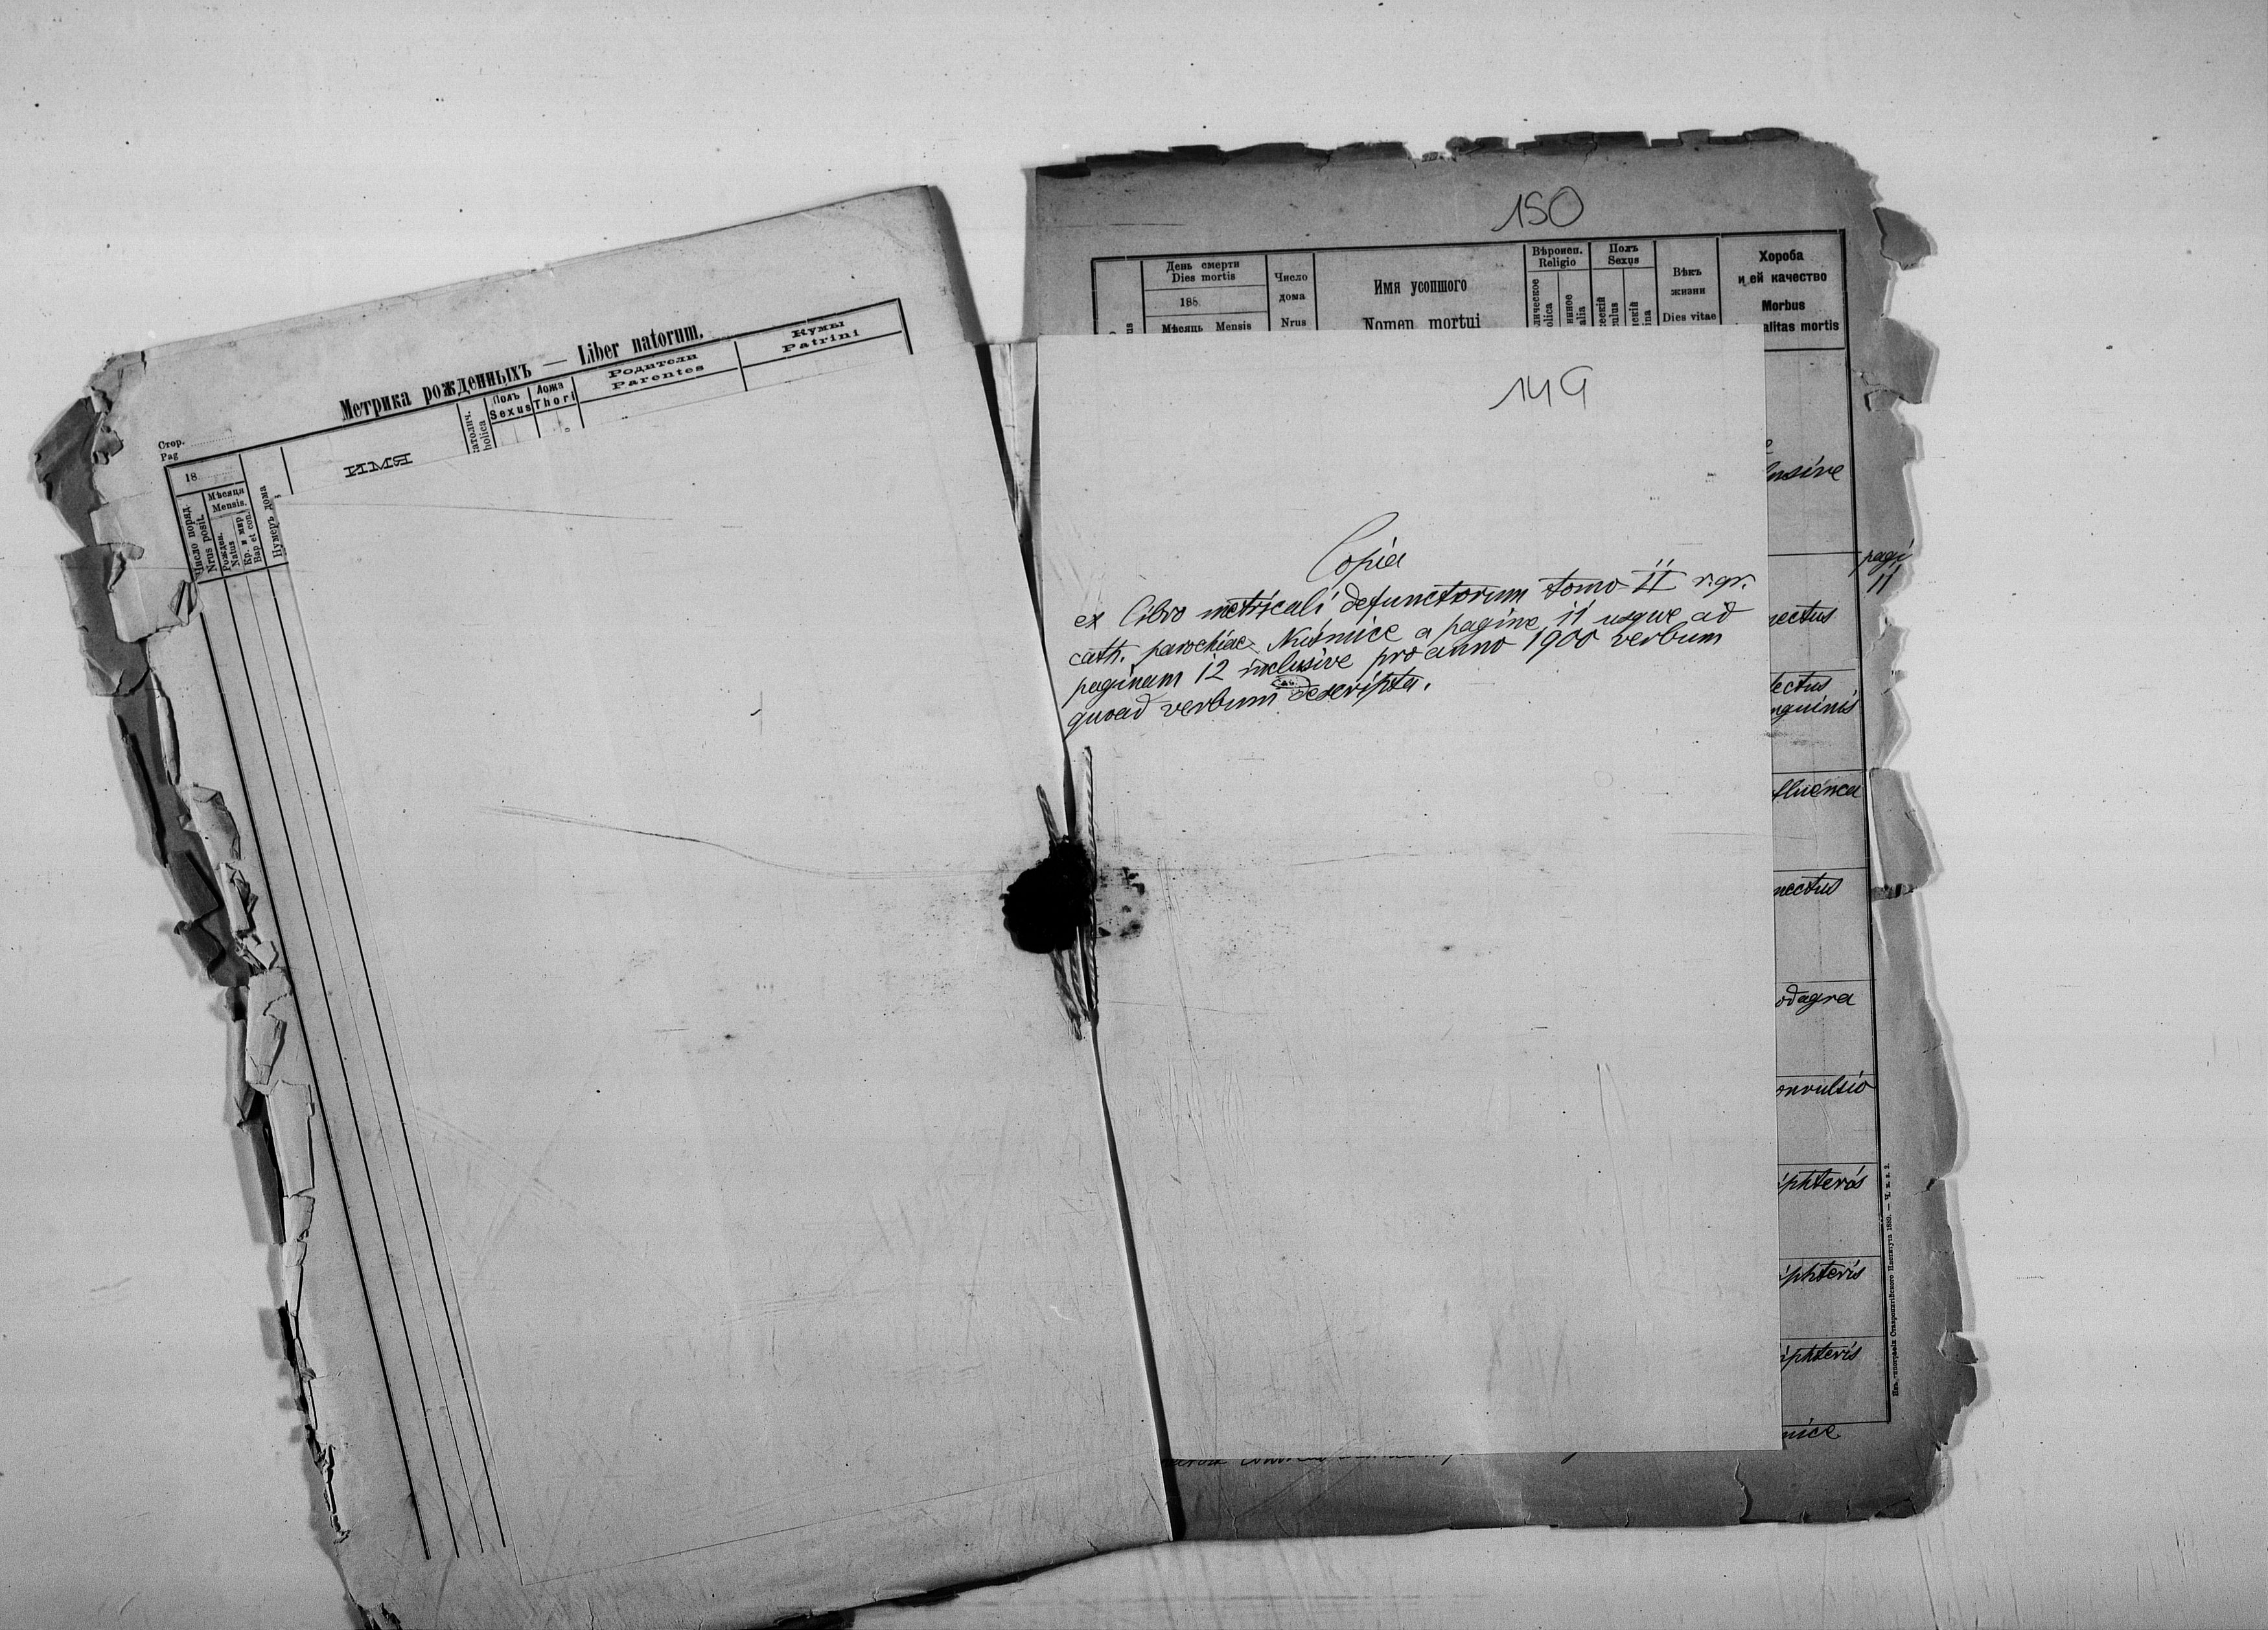 Метрика рожденныхъ — Liber natorum.
Стор.
Pag
18
Число поряд.
Nrus posit.
Мѣсяця
Mensis.
Рожден.
Natus
Кр. и мvр
Bap et con.
Нумеръ дома
ИМЯ
Полъ
Sexus
Ложа
Thori
Родители
Parentes
Кумы
Patrini
150
День смерти
Dies mortis
188
Мѣсяць Mensis
Число
дома
Nrus
Имя усопшого
Nomen mortui
Вѣроисп.
Religio
Полъ
Sexus
Вѣкъ
жизни
Dies vitae
Хороба
и ей качество
Morbus
alitas mortis
149
Copia
ex libro metricali defunctorum tomo II r. gr.
cath. parochiae Kuśmice a pagina 11 usque ad
paginam 12 inclusive pro anno 1900 verbum
quoad verbum descripta.
usive
pagi
11
nectus
lectus
nguinis
fluenca
nectus
odagra
onvulsio
iphteris
iphteris
iphteris
mice
Изъ типографіи Ставропигійского Института 1880. — Ч. в. з. 2.